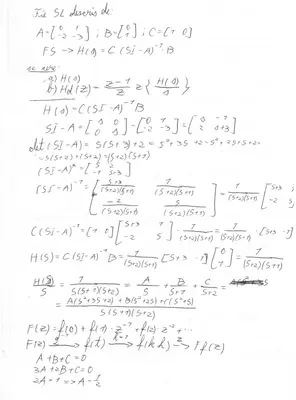 Fie SL descris de
A=[0 1; -2 -3]; B=[0; 1]; C=[1 0]
FS → H(s)=C(SI-A)⁻¹·B
se cere:
a) H(s)
b) Hd(z)= z-1/z Z{H(s)/s}
H(s)=C(SI-A)⁻¹B
SI-A=[s 0; 0 s]-[0 1; -2 -3]=[s -1; 2 s+3]
det(SI-A)=s(s+3)+2=s²+3s+2=s²+2s+s+2=
=s(s+2)+(s+2)=(s+2)(s+1)
(SI-A)⁻¹=[s+3/(s+2)(s+1) 1/(s+2)(s+1); -2/(s+2)(s+1) s/(s+2)(s+1)]=1/(s+2)(s+1)
C(SI-A)⁻¹=[1 0][s+3 1; -2 s]·1/(s+2)(s+1)=1/(s+2)(s+1)·[s+3 1]
H(s)=C(SI-A)⁻¹B=1/(s+2)(s+1)[s+3 1][0; 1]=1/(s+2)(s+1)
H(s)/s=1/s(s+2)(s+1)=A/s+B/s+1+C/s+2=
=A(s²+3s+2)+B(s²+2s)+C(s²+s)/s(s+1)(s+2)
F(z)=f(0)+f(1)·z⁻¹+f(2)·z⁻²+...
A+B+C=0
3A+2B+C=0
2A=1 => A=1/2